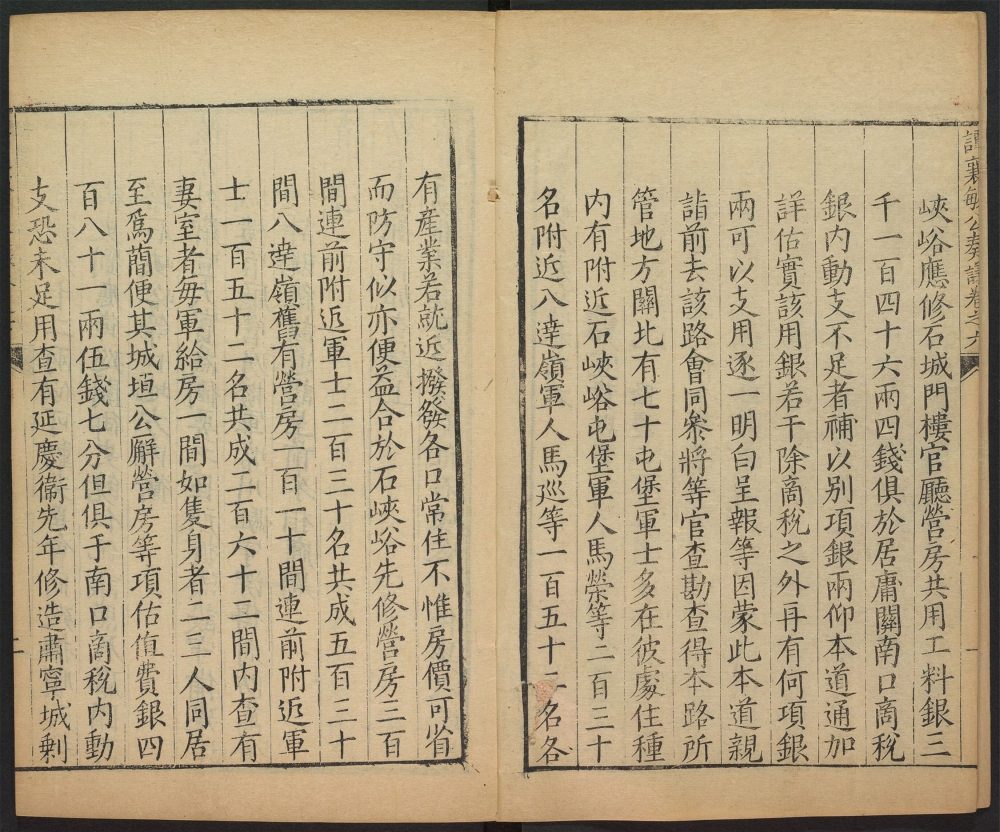 譚襄敏公奏議卷之六
一
峽峪應修石城門樓官廳營房共用工料銀三
千一百四十六兩四錢俱於居庸關南口商稅
銀內動支不足者補以別項銀兩仰本道通加
詳估實該用銀若干除商稅之外再有何項銀
兩可以支用逐一明白呈報等因蒙此本道親
詣前去該路會同叅將等官查勘查得本路所
管地方關北有七十屯堡軍士多在彼處住種
內有附近石峽峪屯堡軍人馬榮等二百三十
名附近八達嶺軍人馬廵等一百五十二名各
有產業若就近撥發各口常住不惟房價可省
而防守似亦便益合於石峽峪先修營房三百
間連前附近軍士二百三十名共成五百三十
間八達嶺舊有營房一百一十間連前附近軍
士一百五十二名共成二百六十二間內查有
妻室者每軍給房一間如隻身者二三人同居
至爲簡便其城垣公廨營房等項估值費銀四
百八十一兩伍錢七分但俱于南口商稅內動
支恐未足用查有延慶衞先年修造肅寧城剩
二